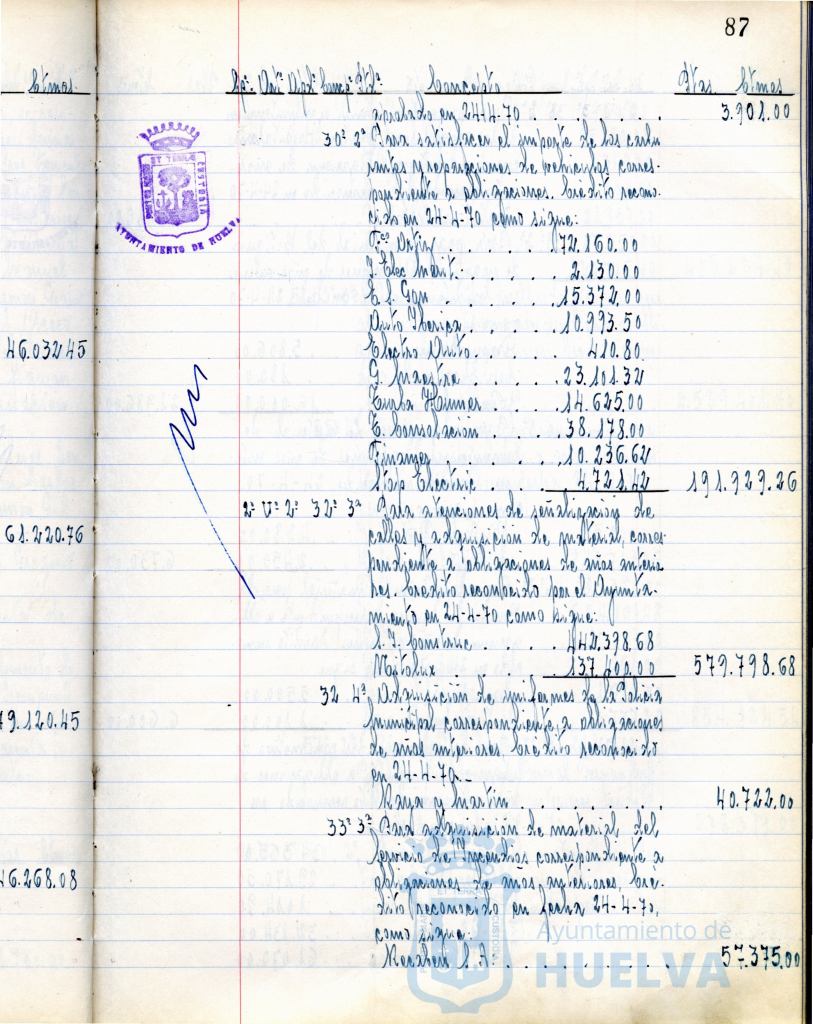 87
Ctmos.
Cpº Artº Dplº Comp. Ptdª Concepto Ptas. Ctmos
aprobado en 24-4-70 . . . . . . 3.901.00
30ª 2ª Para satisfacer el importe de los carbu
rantes y reparaciones de vehículos corres-
pondiente a obligaciones. Crédito recono-
cido en 24-4-70 como sigue:
Fco . . . . 172.160.00
J. Elec . . . . 2.130.00
E. S. . . . . 15.372,00
Auto Iberica . . . 10.993.50
46.032 45
Electro Auto . . . . 410.80
G. Maestra . . . . 23.101.32
. . . . 14.625.00
E. Consolación . . . 38.178.00
Finamer . . . . 10.236.62
Electric . . . 4.721.42 191.929.26
2º Vº 2º 32º 3ª Para atenciones de señalización de
61.220.76
calles y adquisición de material, corres-
pondiente a obligaciones de años anterio
res. Crédito reconocido por el Ayunta-
miento en 24-4-70 como sigue:
S. I. Construc . . . . 442.398.68
. . . . 137.400.00 579.798.68
32 4ª Adquisición de uniformes de la Policia
79.120.45
Municipal correspondiente a obligaciones
de años anteriores, Crédito reconocido
en 24-4-70.-
Raya y Martin . . . . . . . 40.722.00
33ª 3ª Para adquisición de material del
Servicio de Incendios correspondiente a
46.268.08
obligaciones de años anteriores, Cré-
dito reconocido en fecha 24-4-70,
como sigue:
S. A. . . . . . . . 57.375.00
AYUNTAMIENTO DE HUELVA
Ayuntamiento de
HUELVA